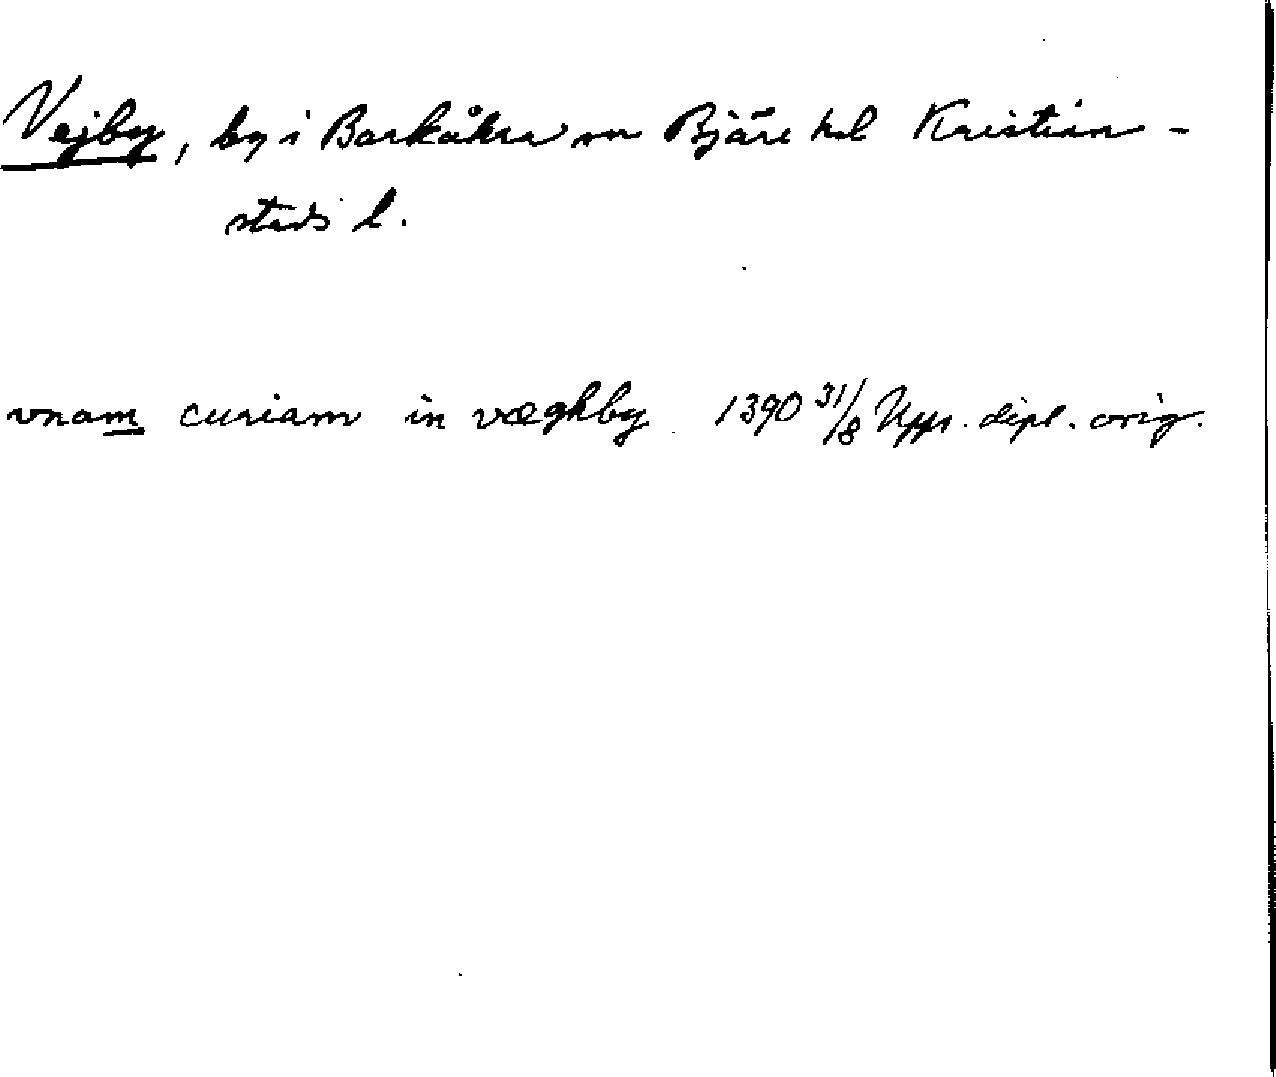 Vejby, by i Barkåkra sn Bjäre hd Kristian-
stads l.
vnam curiam in væghby 1390 31/8 Upps. dipl. orig.